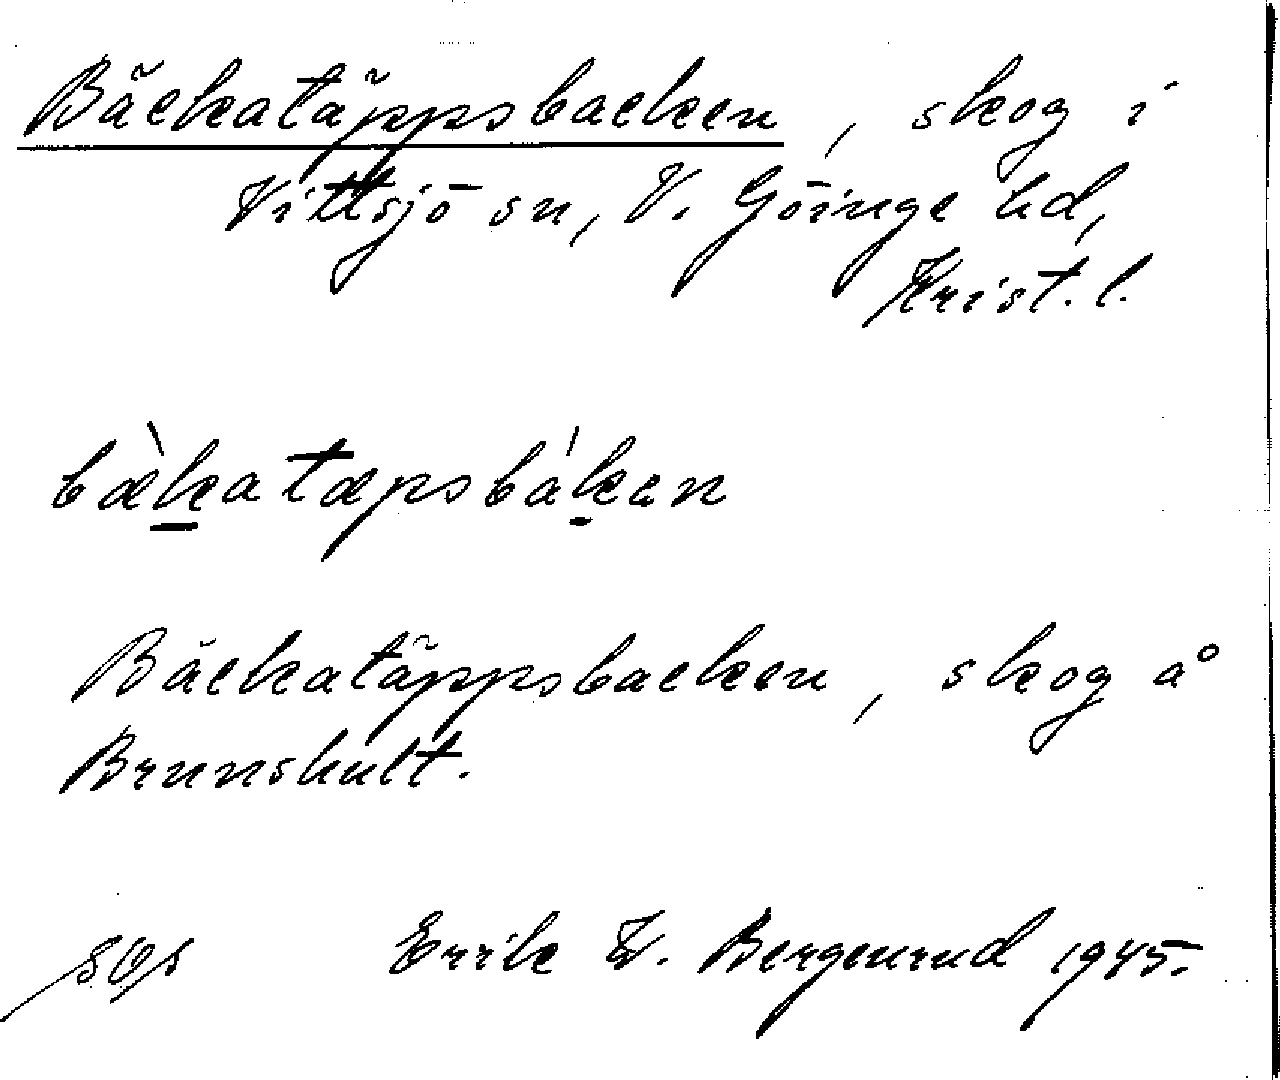 Bäckatäppsbacken, skog i
Vittsjö sn, V. Göinge hd,
Krist. l.
bæ̀katæpsbákən
Bäckatäppsbacken, skog å
Brunshult.
Errik W. Bergenrud 1945.